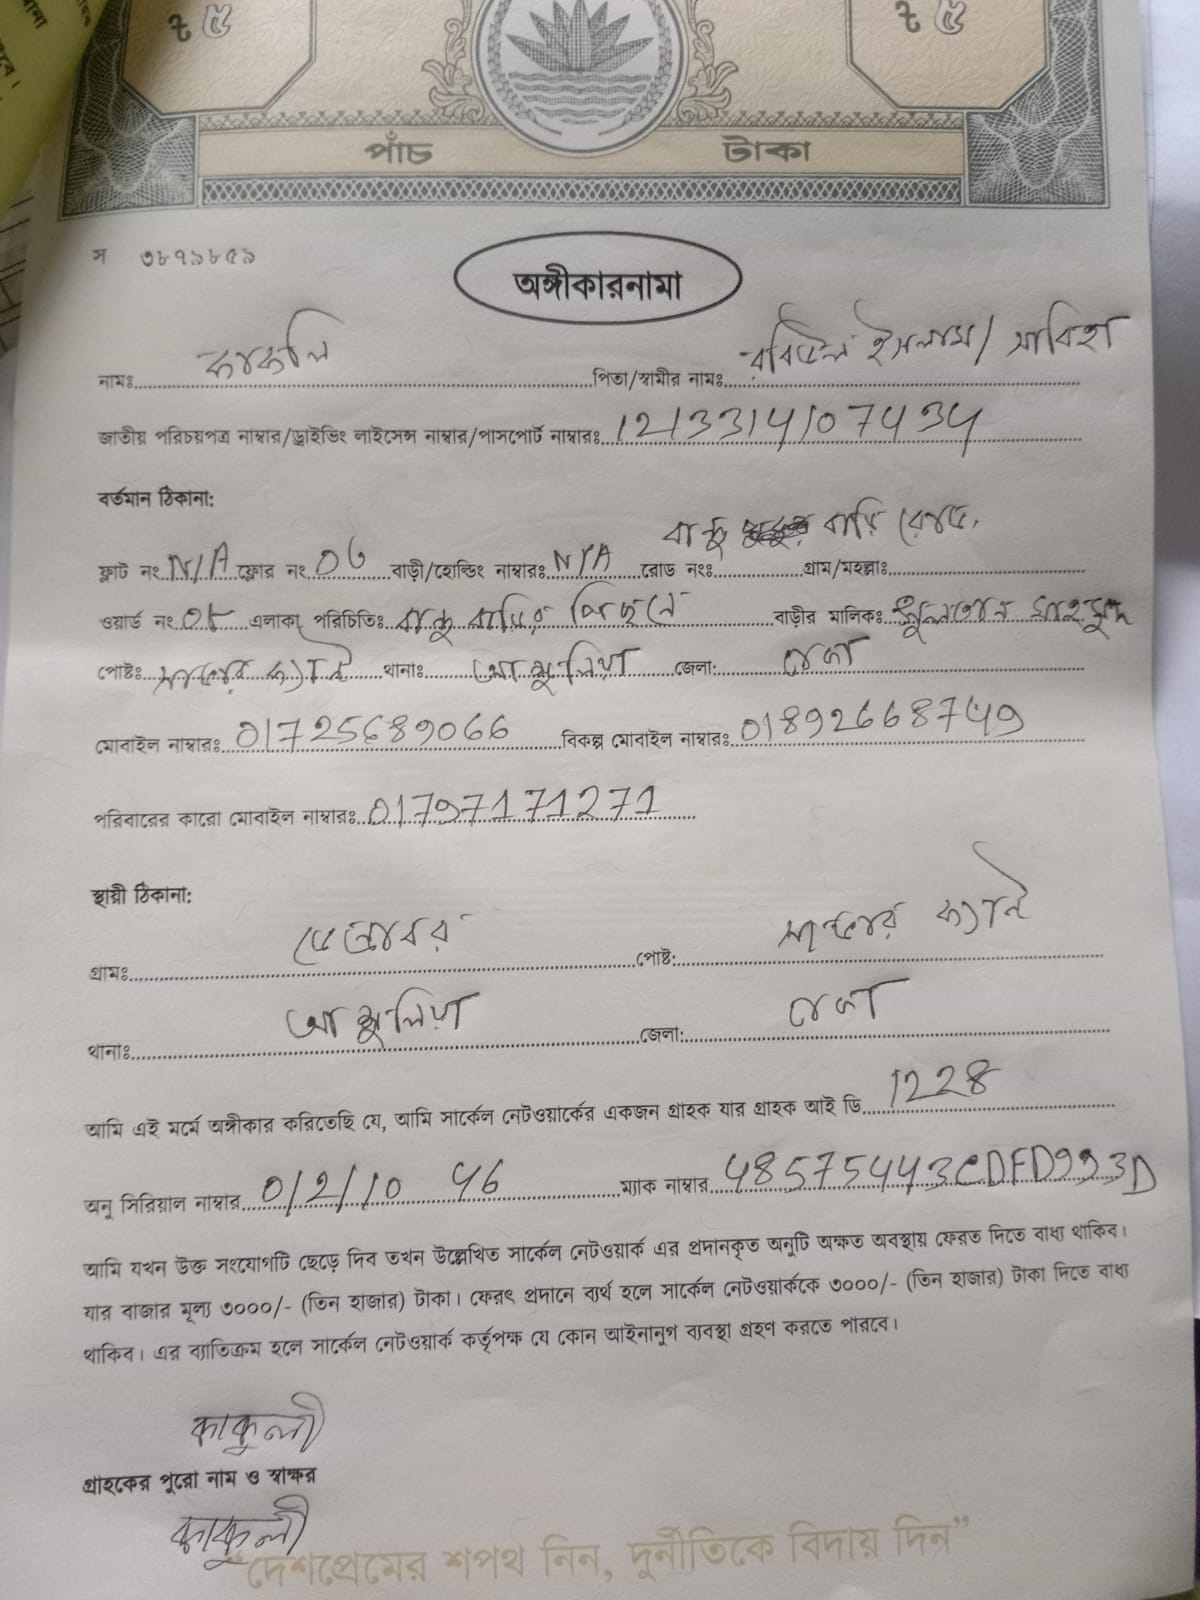 ৳ ৫ ৳ ৫
পাঁচ টাকা
স ৩৮৭৯৮৫৯
অঙ্গীকারনামা
নামঃ কাকলি পিতা/স্বামীর নামঃ রবিউল ইসলাম/ সাবিহা
জাতীয় পরিচয়পত্র নাম্বার/ড্রাইভিং লাইসেন্স নাম্বার/পাসপোর্ট নাম্বারঃ 1213314107434
বর্তমান ঠিকানা:
বাড়ি রোড,
ফ্লাট নং N/A ফ্লোর নং 06 বাড়ী/হোল্ডিং নাম্বারঃ N/A রোড নংঃ গ্রাম/মহল্লাঃ
ওয়ার্ড নং ০৮ এলাকা পরিচিতিঃ বাড়ির পিছনে বাড়ীর মালিকঃ সুলতান মাহমুদ
পোষ্টঃ থানাঃ আশুলিয়া জেলা: ঢাকা
মোবাইল নাম্বারঃ 01725689066 বিকল্প মোবাইল নাম্বারঃ 01892668749
পরিবারের কারো মোবাইল নাম্বারঃ 01797171271
স্থায়ী ঠিকানা:
গ্রামঃ পোষ্ট:
থানাঃ আশুলিয়া জেলা: ঢাকা
আমি এই মর্মে অঙ্গীকার করিতেছি যে, আমি সার্কেল নেটওয়ার্কের একজন গ্রাহক যার গ্রাহক আই ডি 1228
অনু সিরিয়াল নাম্বার 0/2/10 46 ম্যাক নাম্বার 48575443CDFD993D
আমি যখন উক্ত সংযোগটি ছেড়ে দিব তখন উল্লেখিত সার্কেল নেটওয়ার্ক এর প্রদানকৃত অনুটি অক্ষত অবস্থায় ফেরত দিতে বাধ্য থাকিব।
যার বাজার মূল্য ৩০০০/- (তিন হাজার) টাকা। ফেরৎ প্রদানে ব্যর্থ হলে সার্কেল নেটওয়ার্ককে ৩০০০/- (তিন হাজার) টাকা দিতে বাধ্য
থাকিব। এর ব্যাতিক্রম হলে সার্কেল নেটওয়ার্ক কর্তৃপক্ষ যে কোন আইনানুগ ব্যবস্থা গ্রহণ করতে পারবে।
কাকুলী
গ্রাহকের পুরো নাম ও স্বাক্ষর
কাকুলী
“দেশপ্রেমের শপথ নিন, দুর্নীতিকে বিদায় দিন”